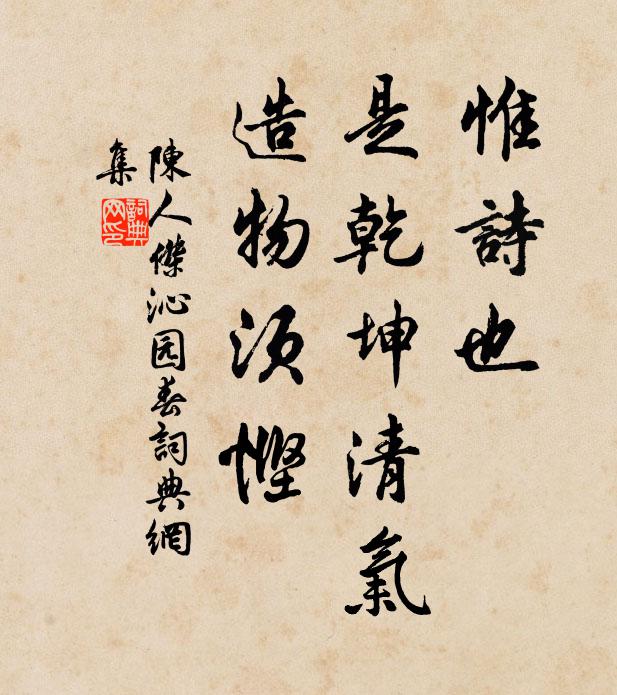 惟詩也
是乾坤清氣
造物須慳
陳人傑沁园春詞典網
集
詞典网印